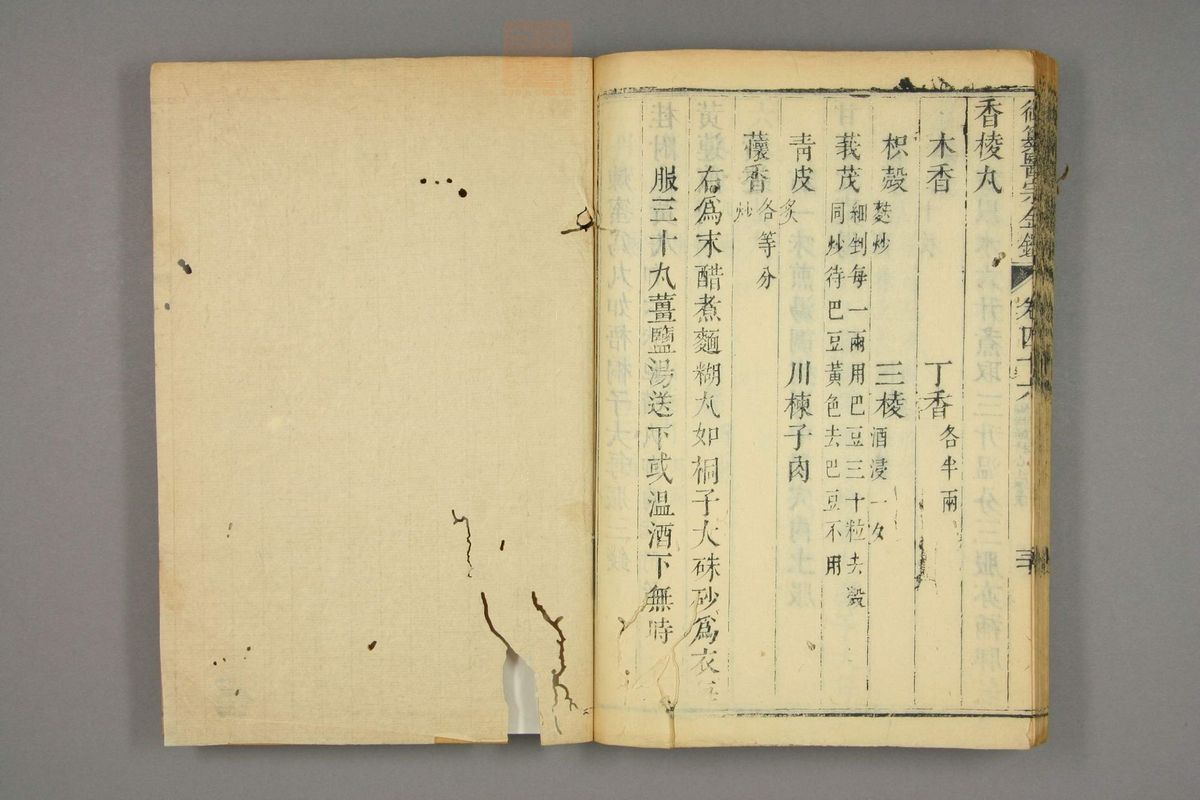 御纂醫宗金鑑 卷四十六
香棱丸
木香 丁香各半兩
枳殼麩炒 三棱酒浸一夕
莪茂細剉每一兩用巴豆三十粒去殼同炒待巴豆黃色去巴豆不用
青皮炙 川楝子肉
蘹香炒各等分
右為末醋煮麵糊丸如桐子大硃砂為衣每
服三十丸薑鹽湯送下或温酒下無時